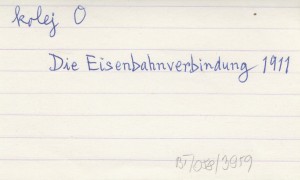 kolej O
Die Eisenbahnverbindung 1911
BT/058/3959